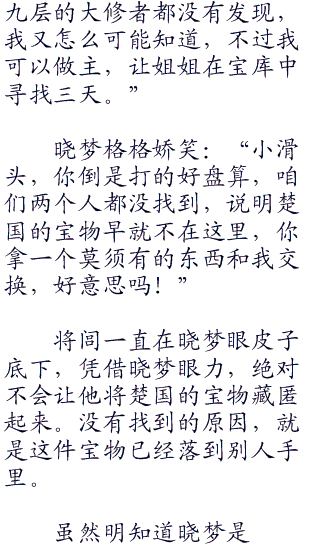 九层的大修者都没有发现，
我又怎么可能知道，不过我
可以做主，让姐姐在宝库中
寻找三天。”
晓梦格格娇笑：“小滑
头，你倒是打的好盘算，咱
们两个人都没找到，说明楚
国的宝物早就不在这里，你
拿一个莫须有的东西和我交
换，好意思吗！”
将闾一直在晓梦眼皮子
底下，凭借晓梦眼力，绝对
不会让他将楚国的宝物藏匿
起来。没有找到的原因，就
是这件宝物已经落到别人手
里。
虽然明知道晓梦是